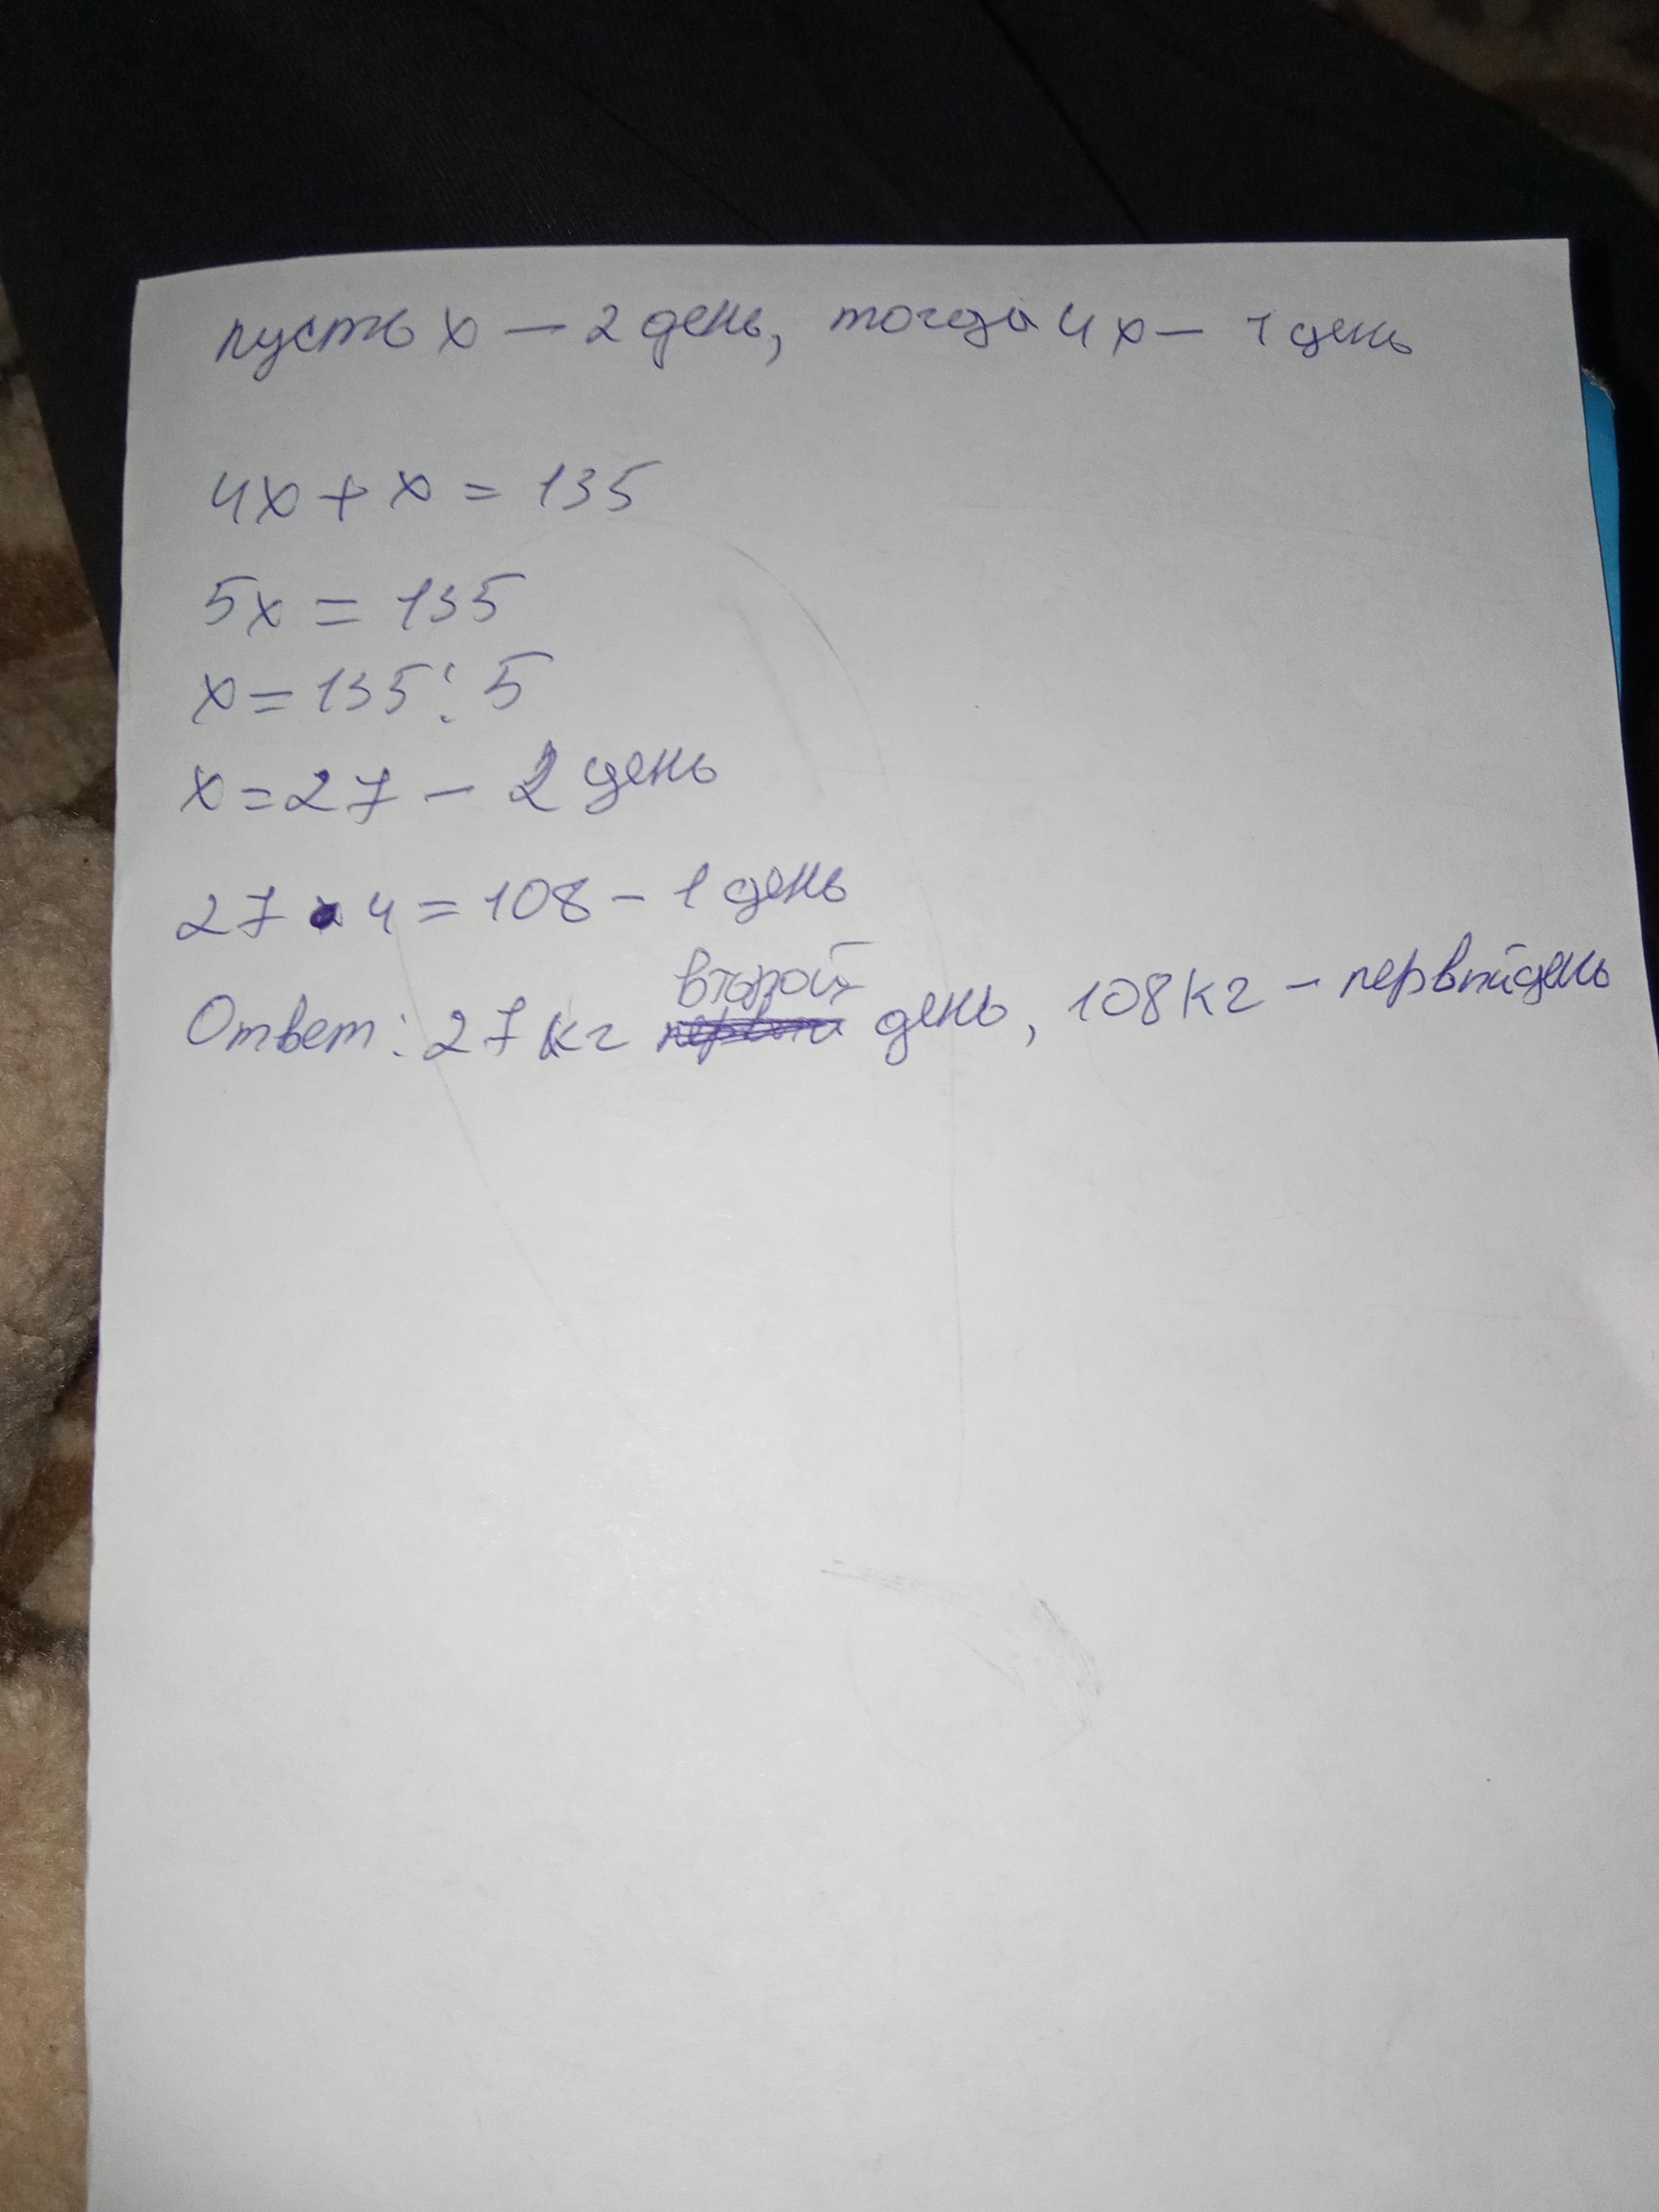 пусть x — 2 день, тогда 4x — 1 день
4x + x = 135
5x = 135
x = 135 : 5
x = 27 — 2 день
27 • 4 = 108 — 1 день
второй
Ответ: 27 кг первый день, 108 кг — первый день